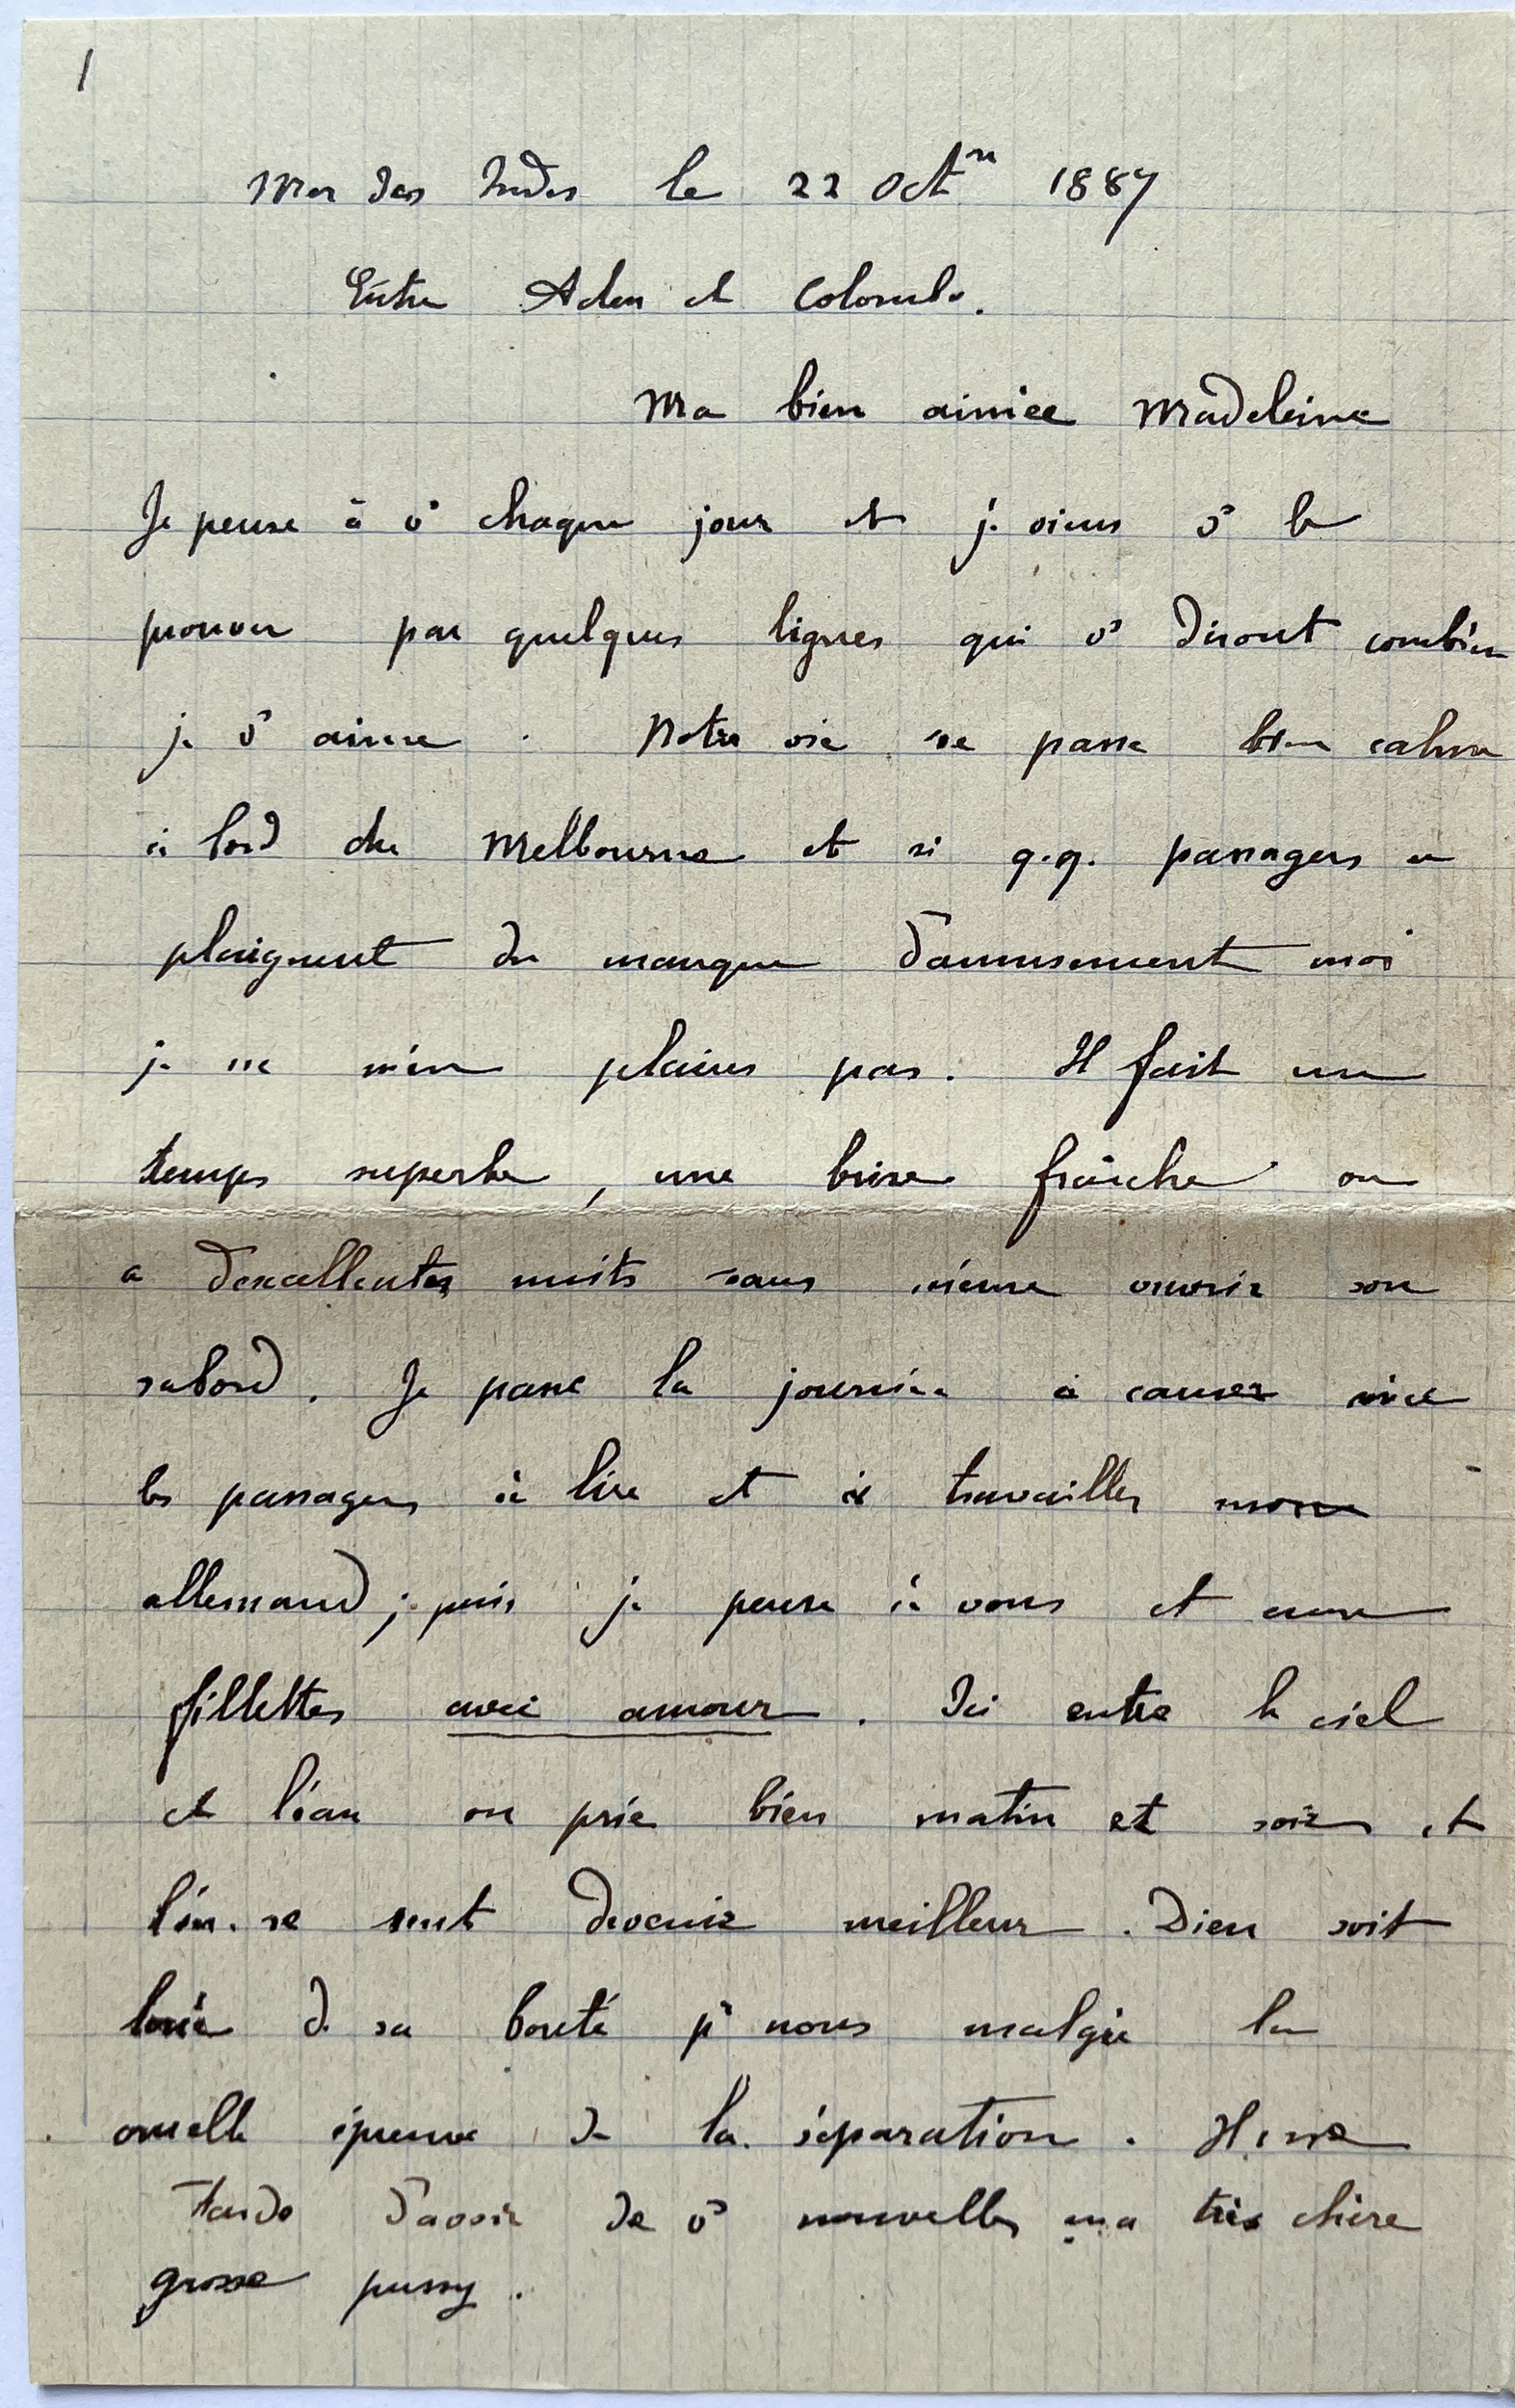 1
Mer des Indes le 22 Oct re 1887
Entre Aden et Colombo.
Ma bien aimée Madeleine
Je pense à vs chaque jour et je viens vs le
prouver par quelques lignes qui vs diront combien
je vs aime. Notre vie se passe bien calme
à bord du Melbourne et si q.q. passagers se
plaignent du manque d'amusement moi
je ne m'en plains pas. Il fait un
temps superbe, une brise fraîche on
a d'excellentes nuits sans même ouvrir son
sabord. Je passe la journée à causer avec
les passagers à lire et à travailler mon
allemand; puis je pense à vous et aux
fillettes avec amour. Ici entre le ciel
et l'eau on prie bien matin et soir et
l'on se sent devenir meilleur. Dieu soit
loué de sa bonté pr nous malgré la
cruelle épreuve de la séparation. Il me
tarde d'avoir de vs nouvelles ma très chère
grosse pussy.